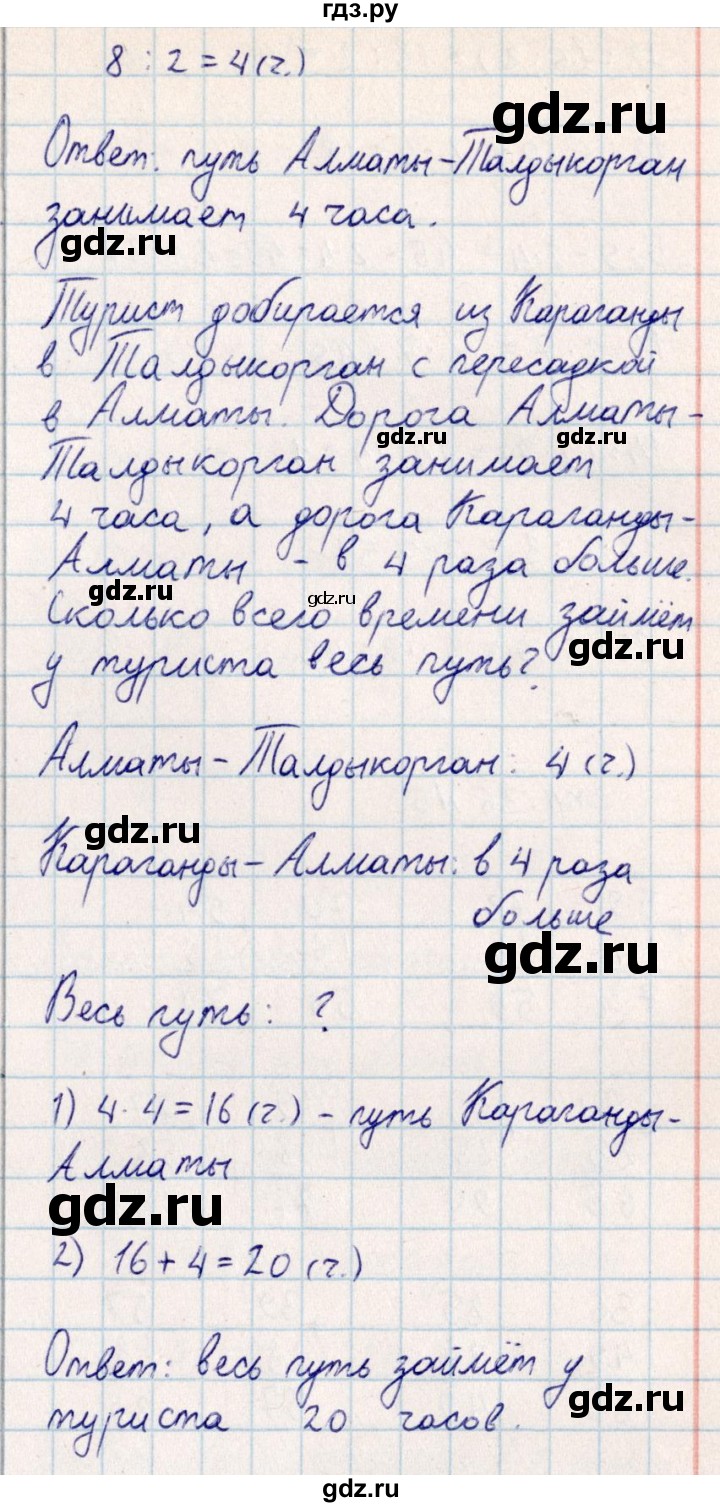 гдз.ру
8 : 2 = 4 (ч.)
gdz.ru
Ответ: путь Алматы-Талдыкорган
занимает 4 часа.
gdz.ru
Турист добирается из Караганды
в Талдыкорган с пересадкой
в Алматы. Дорога Алматы-
gdz.ru gdz.ru
Талдыкорган занимает
4 часа, а дорога Караганды-
Алматы - в 4 раза больше.
gdz.ru gdz.ru
Сколько всего времени займёт
gdz.ru
у туриста весь путь?
Алматы - Талдыкорган: 4 (ч.)
gdz.ru
Караганды - Алматы: в 4 раза
больше
gdz.ru
Весь путь: ?
1) 4 · 4 = 16 (ч.) - путь Караганды-
Алматы
gdz.ru
2) 16 + 4 = 20 (ч.)
Ответ: весь путь займёт у
gdz.ru
туриста 20 часов.
gdz.ru